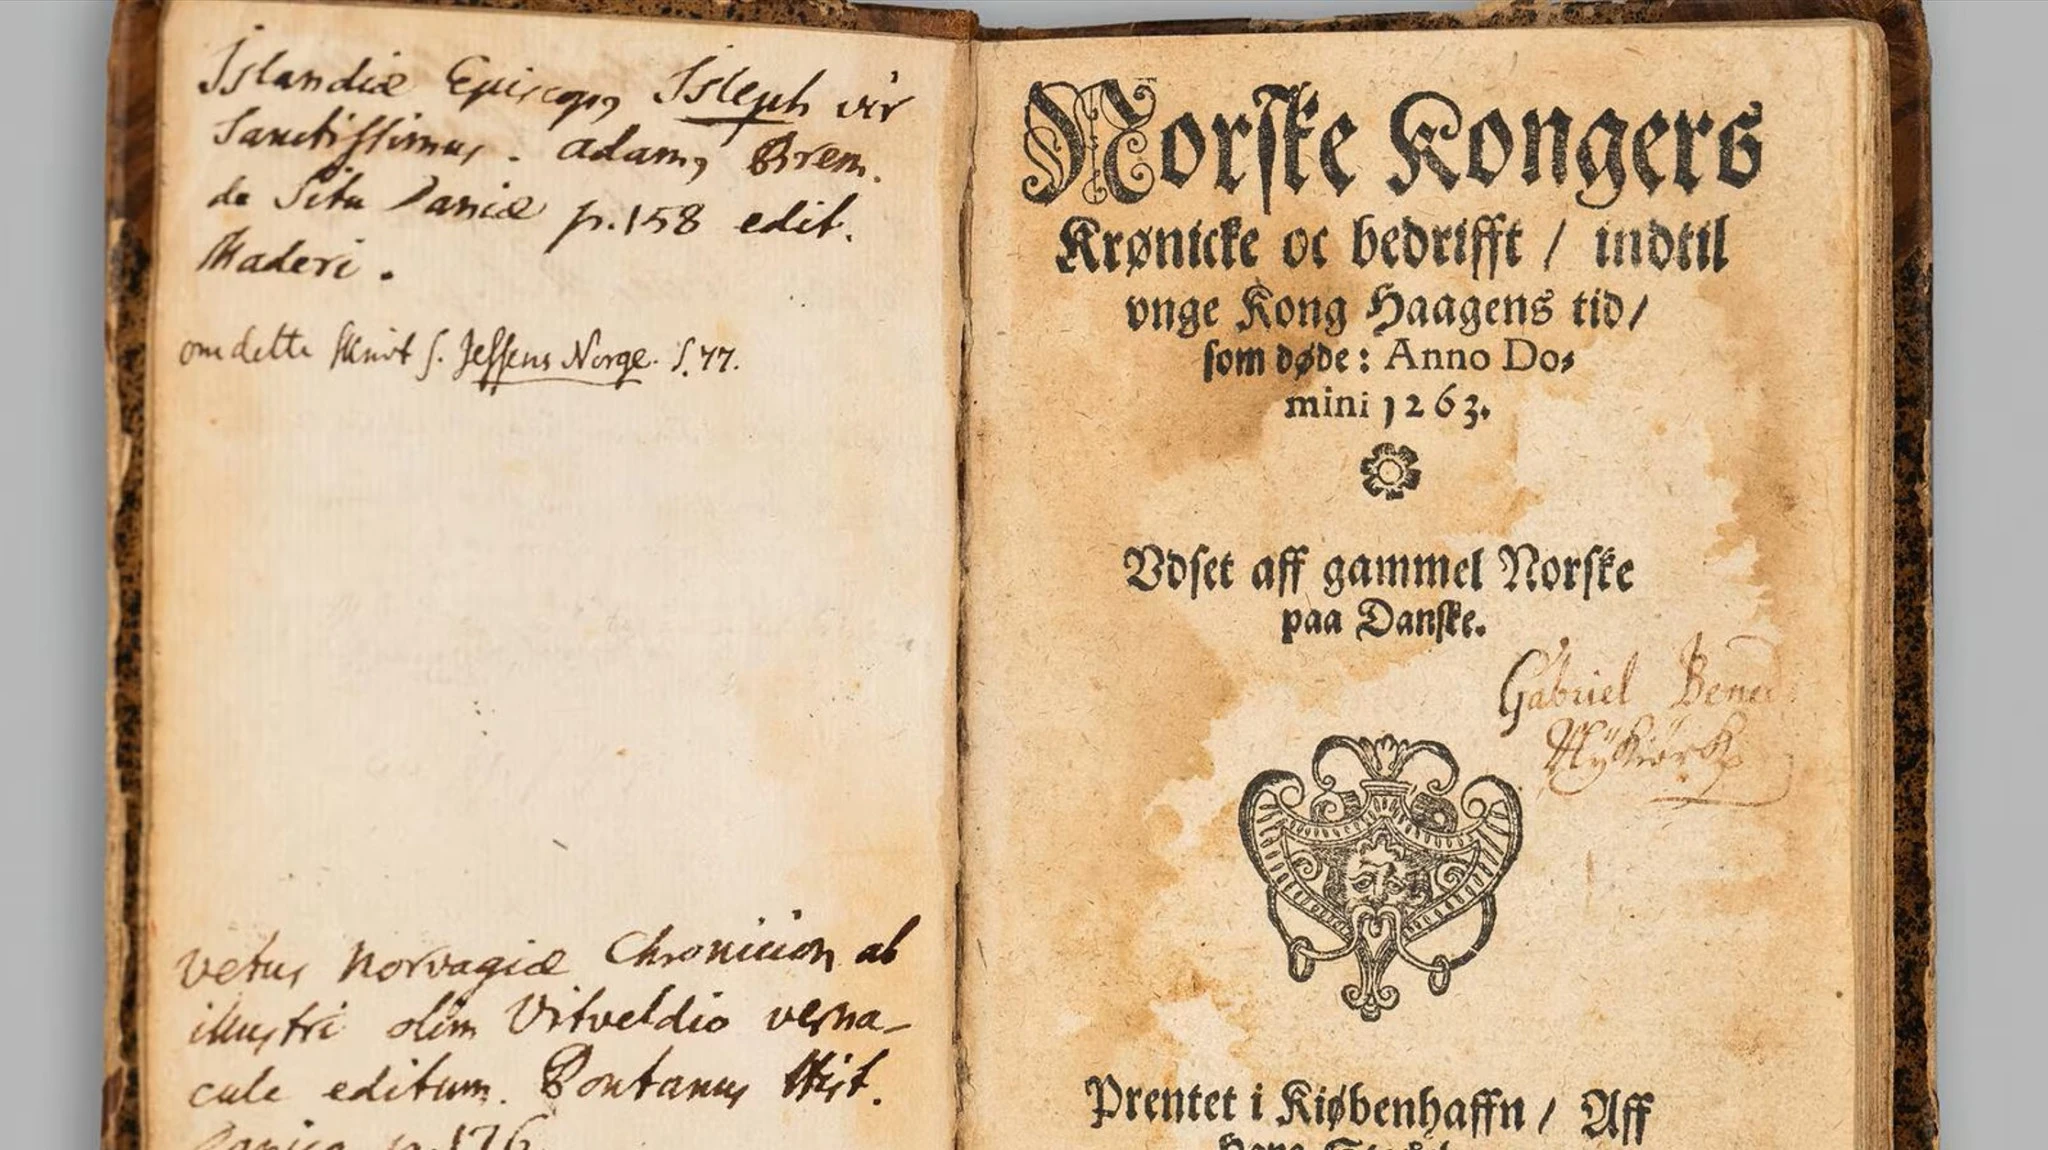 Islandiæ Episcopq Isleph vir
Sanctissimus. Adamq Brem.
de Situ Daniæ p. 158 edit.
Maderi.
om dette Skrivt s. Jessens Norge. S. 77.
vetus Norvagiæ Chronicion ab
illustri olim Vitveldio verna-
cule editum. Pontanus Hist.
Danica p. 176
Norske Kongers
Krønicke oc bedrifft / indtil
vnge Kong Haagens tid /
som døde: Anno Do-
mini 1263.
Vdset aff gammel Norske
paa Danske.
Gabriel Bened
Prentet i Kiøbenhaffn / Aff